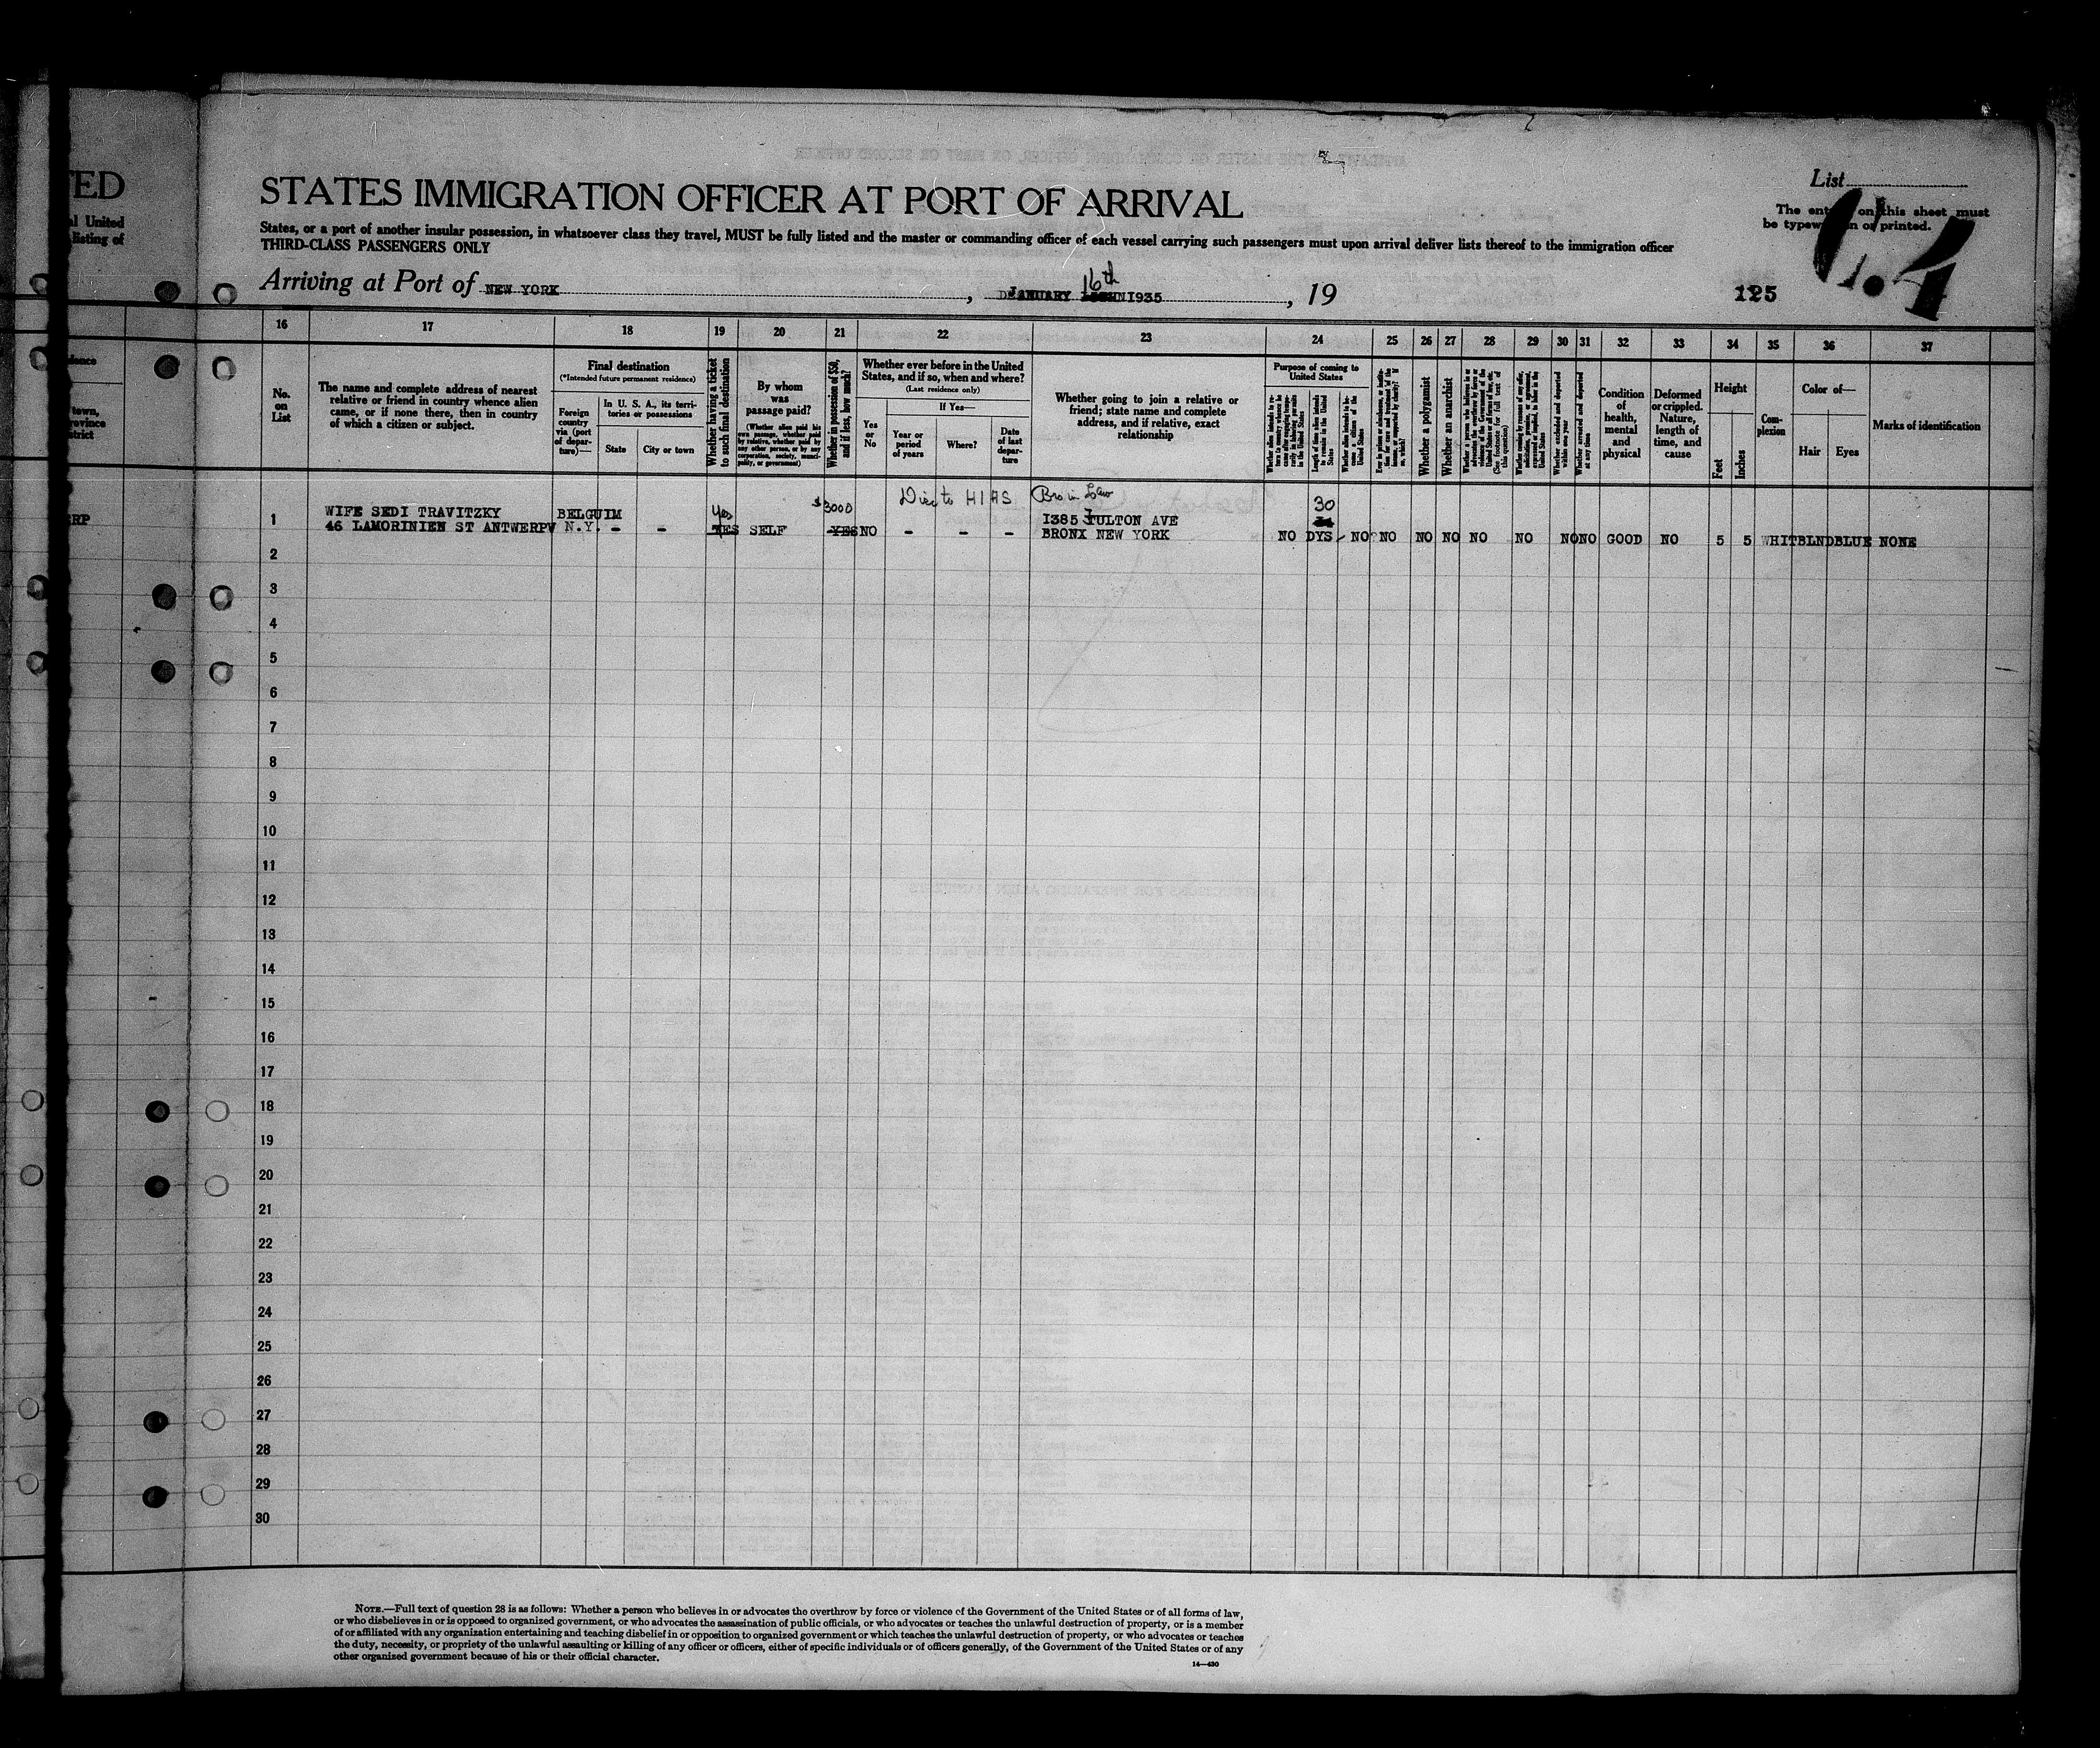 TED
al United
listing of
STATES IMMIGRATION OFFICER AT PORT OF ARRIVAL
List
The ent on this sheet must
be typew n or printed.
States, or a port of another insular possession, in whatsoever class they travel, MUST be fully listed and the master or commanding officer of each vessel carrying such passengers must upon arrival deliver lists thereof to the immigration officer
THIRD-CLASS PASSENGERS ONLY
16th
Arriving at Port of NEW YORK , JANUARY 1935 , 19
125
16 17 18 19 20 21 22 23 24 25 26 27 28 29 30 31 32 33 34 35 36 37
No. on List
The name and complete address of nearest relative or friend in country whence alien came, or if none there, then in country of which a citizen or subject.
Final destination
(*Intended future permanent residence)
Foreign country via (port of departure)—
In U. S. A., its territories or possessions
State
City or town
Whether having a ticket to such final destination
By whom was passage paid?
(Whether alien paid his own passage, whether paid by relative, whether paid by any other person, or by any corporation, society, municipality, or government)
Whether in possession of $50, and if less, how much?
Whether ever before in the United States, and if so, when and where?
(Last residence only)
Yes or No
If Yes—
Year or period of years
Where?
Date of last departure
Whether going to join a relative or friend; state name and complete address, and if relative, exact relationship
Purpose of coming to United States
Length of time alien intends to remain in the United States
Whether a polygamist
Whether an anarchist
(See footnote for full text of this question)
Whether excluded and deported within one year
Whether arrested and deported at any time
Condition of health, mental and physical
Deformed or crippled. Nature, length of time, and cause
Height
Feet
Inches
Complexion
Color of—
Hair
Eyes
Marks of identification
$3000 to HIAS Bro in Law 30
WIFE SEDI TRAVITZKY BELGUIM yes
1 46 LAMORINIEN ST ANTWERP N.Y. - - YES SELF YES NO - - - 1385 FULTON AVE
BRONX NEW YORK NO DYS NO NO NO NO NO NO NO NO GOOD NO 5 5 WHIT BLND BLUE NONE
ERP
2
3
4
5
6
7
8
9
10
11
12
13
14
15
16
17
18
19
20
21
22
23
24
25
26
27
28
29
30
NOTE.—Full text of question 28 is as follows: Whether a person who believes in or advocates the overthrow by force or violence of the Government of the United States or of all forms of law,
or who disbelieves in or is opposed to organized government, or who advocates the assassination of public officials, or who advocates or teaches the unlawful destruction of property, or is a member
of or affiliated with any organization entertaining and teaching disbelief in or opposition to organized government or which teaches the unlawful destruction of property, or who advocates or teaches
the duty, necessity, or propriety of the unlawful assaulting or killing of any officer or officers, either of specific individuals or of officers generally, of the Government of the United States or of any
other organized government because of his or their official character.
14—430